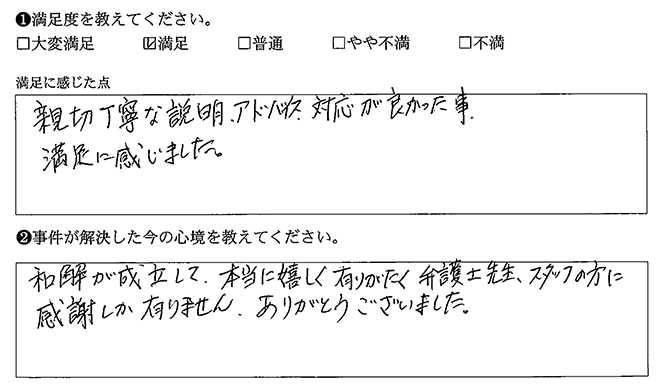 ❶満足度を教えてください。
□大変満足 ☑満足 □普通 □やや不満 □不満
満足に感じた点
親切丁寧な説明、アドバイス、対応が良かった事、
満足に感じました。
❷事件が解決した今の心境を教えてください。
和解が成立して、本当に嬉しく有りがたく弁護士先生、スタッフの方に
感謝しか有りません、ありがとうございました。